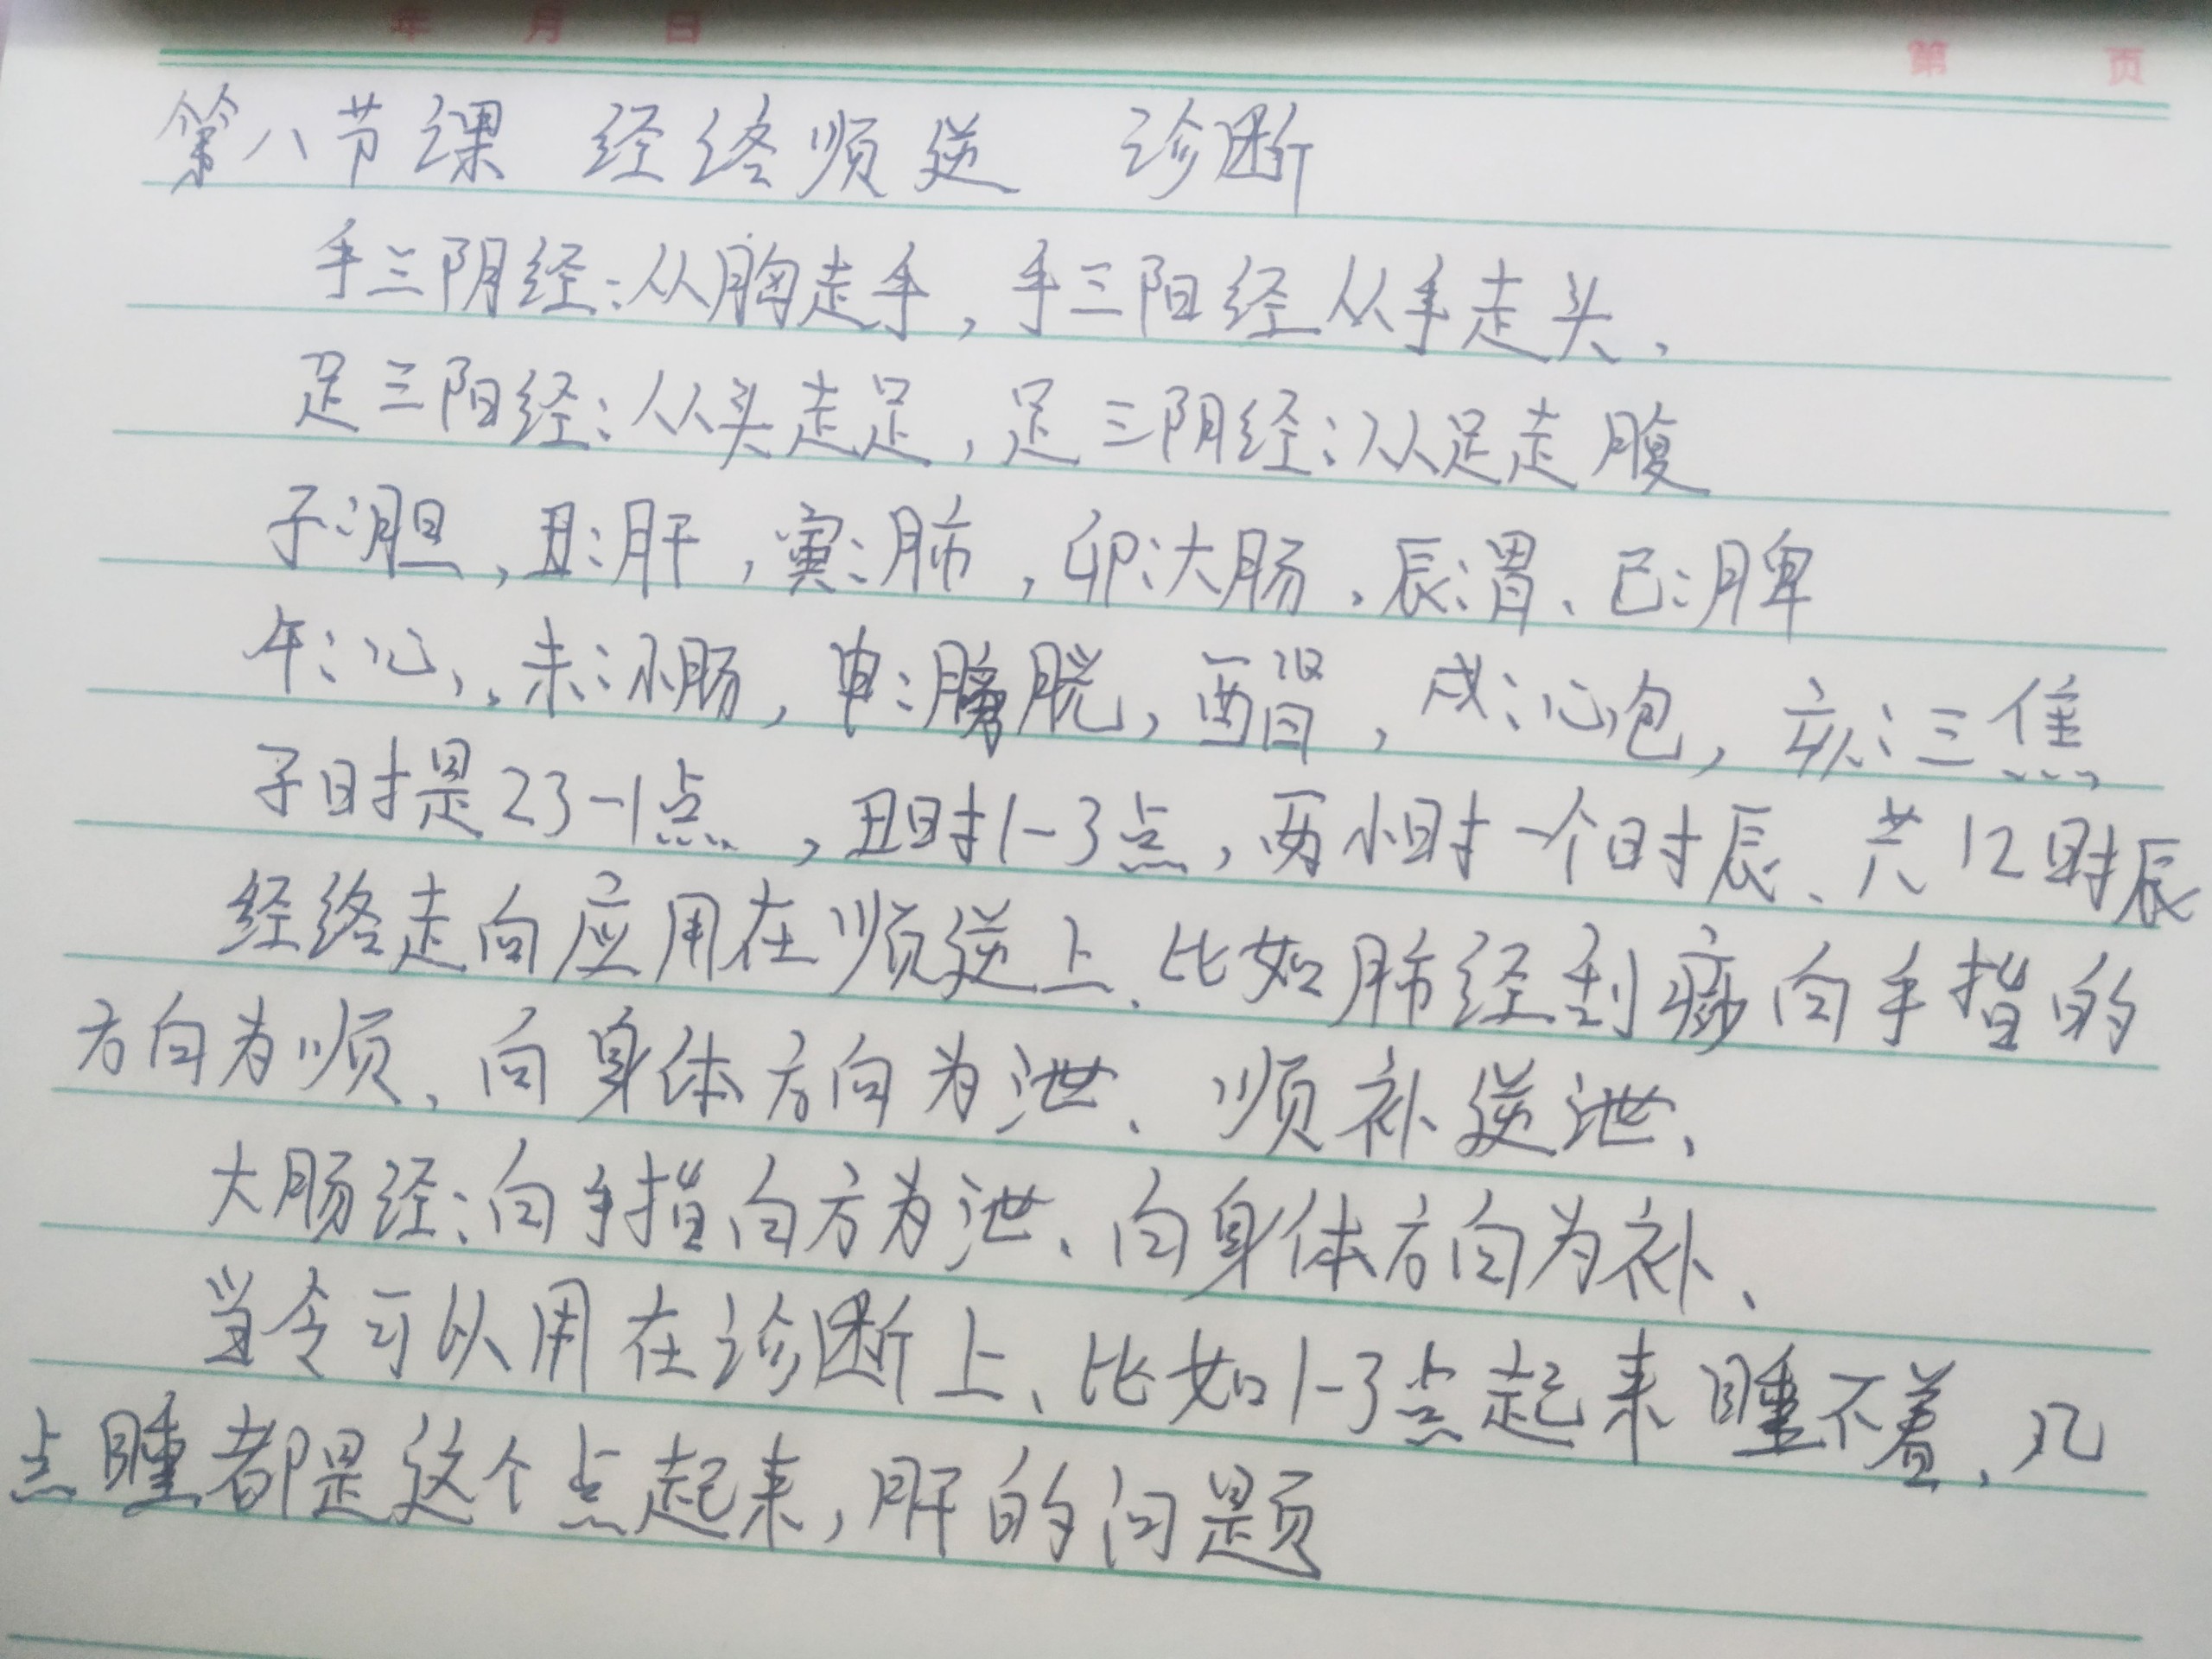 年 月 日
第 页
第八节课 经络顺逆 诊断
手三阴经:从胸走手,手三阳经从手走头、
足三阳经:从头走足,足三阴经:从足走腹
子:胆,丑:肝,寅:肺,卯:大肠、辰:胃、巳:脾
午:心、未:小肠,申:膀胱,酉肾,戌:心包,亥:三焦
子时是23-1点,丑时1-3点,两小时一个时辰、共12时辰
经络走向应用在顺逆上、比如肺经刮痧向手指的
方向为顺、向身体方向为泄、顺补逆泄、
大肠经:向手指向方为泄、向身体方向为补、
当令可以用在诊断上、比如1-3点起来睡不着、几
点睡都是这个点起来,肝的问题